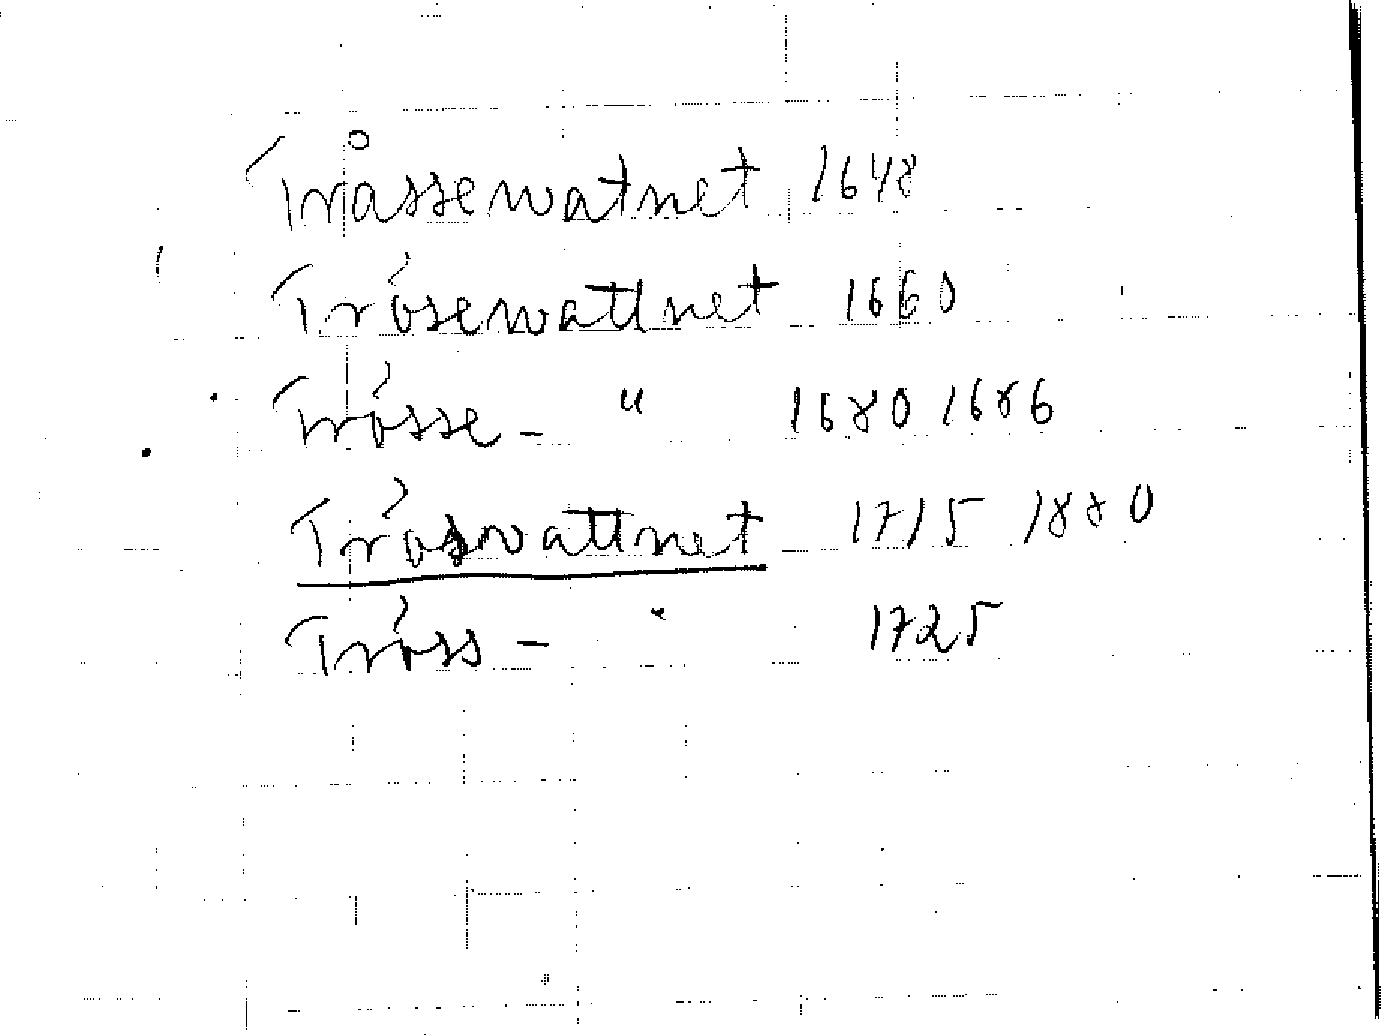 Tråssewatnet 1648
Trósewattnet 1660
Trósse- " 1680 1686
Tróswattnet 1715 1880
Tróss- " 1725